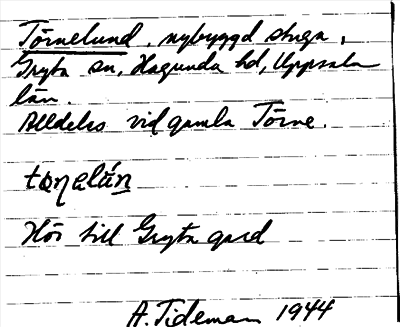 Törnelund, nybyggd stuga,
Gryta sn, Hagunda hd, Uppsala
län.
Alldeles vid gamla Törne.
Hör till Gryta gård
A. Tideman 1944